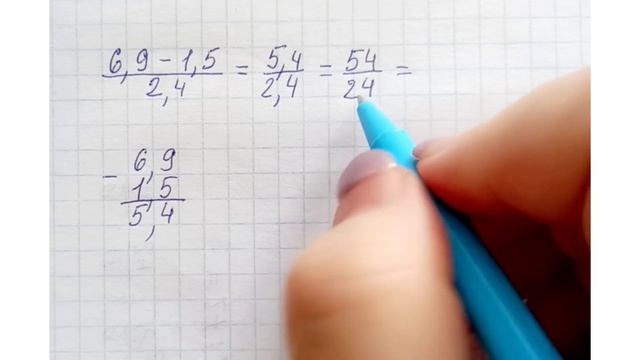 6,9 - 1,5 / 2,4 = 5,4 / 2,4 = 54 / 24 =
- 6,9
1,5
5,4